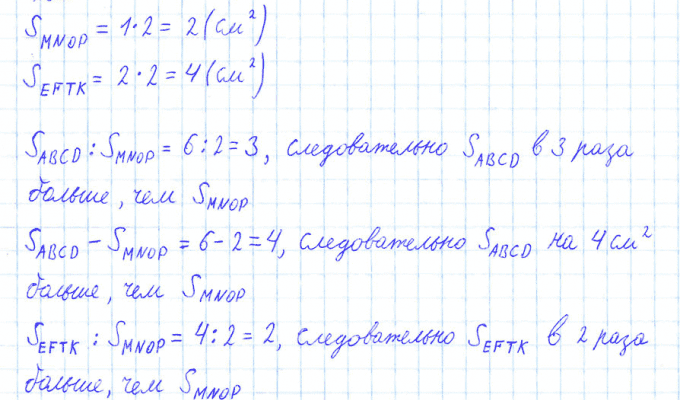 S MNOP = 1·2 = 2 (см²)
S EFTK = 2·2 = 4 (см²)
S ABCD : S MNOP = 6:2=3, следовательно S ABCD в 3 раза
больше, чем S MNOP
S ABCD – S MNOP = 6-2=4, следовательно S ABCD на 4 см²
больше, чем S MNOP
S EFTK : S MNOP = 4:2=2, следовательно S EFTK в 2 раза
больше, чем S MNOP